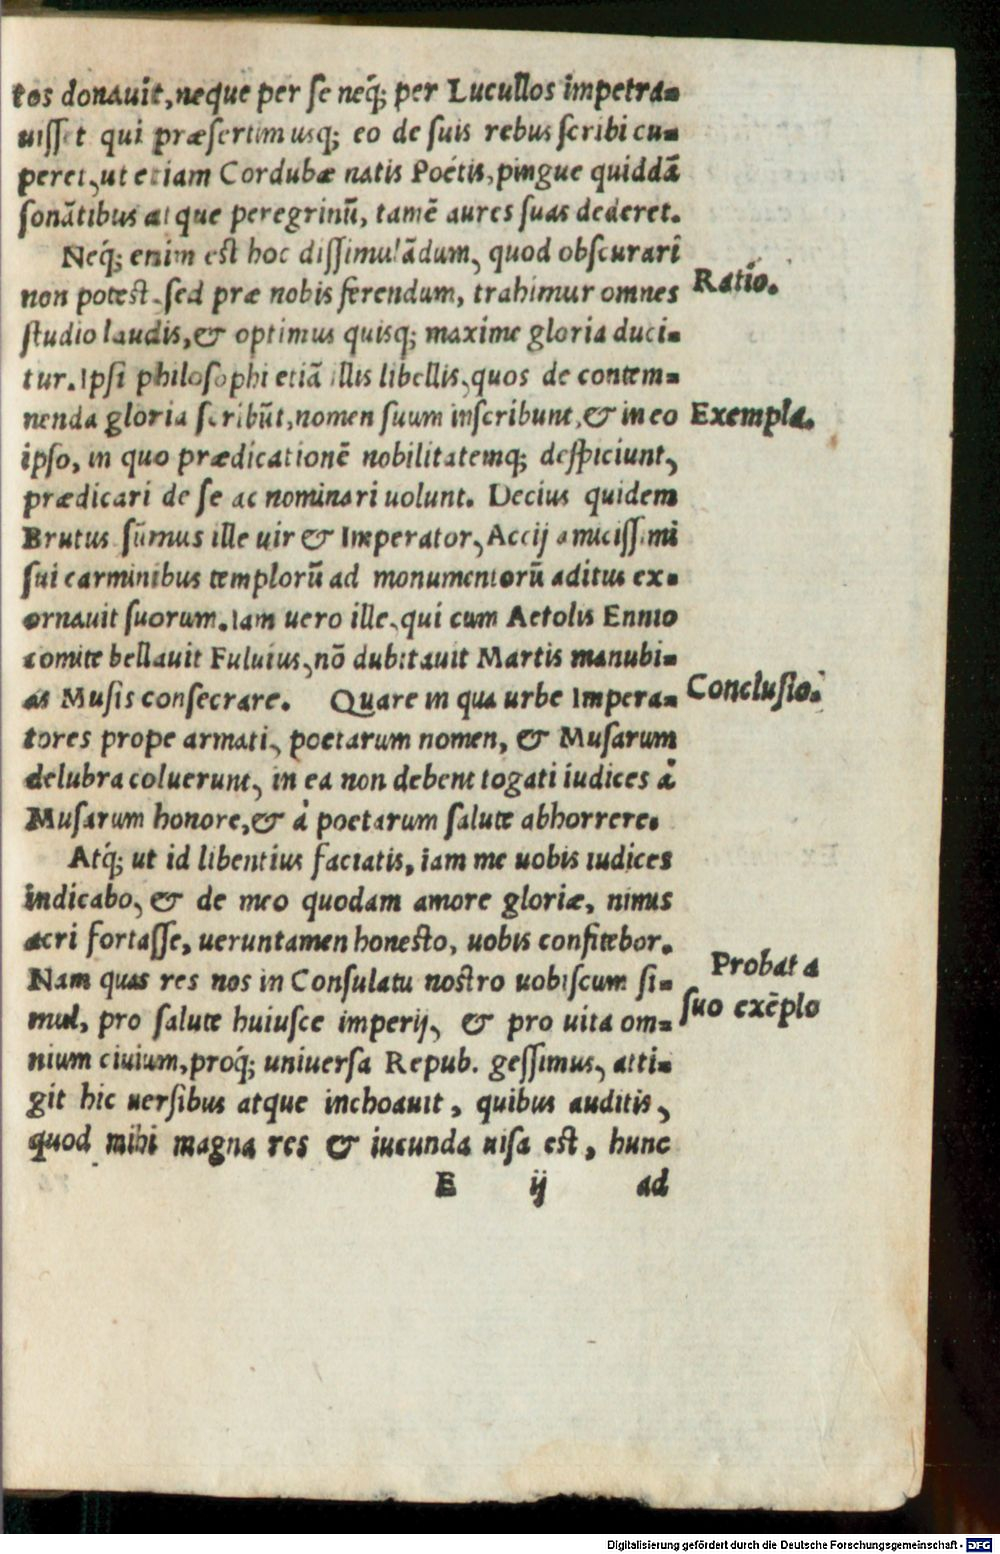 tos donauit, neque per se neq́; per Lucullos impetra-
uisset qui præsertim usq; eo de suis rebus scribi cu-
peret, ut etiam Cordubæ natis Poëtis, pingue quiddã
sonãtibus atque peregrinũ, tamẽ aures suas dederet.
Neq́; enim est hoc dissimulãdum, quod obscurari
non potest, sed præ nobis ferendum, trahimur omnes
Ratio.
studio laudis, & optimus quisq; maxime gloria duci-
tur. Ipsi philosophi etiã illis libellis, quos de contem-
nenda gloria scribũt, nomen suum inscribunt, & in eo
Exempla.
ipso, in quo prædicationẽ nobilitatemq; despiciunt,
prædicari de se ac nominari uolunt. Decius quidem
Brutus sũmus ille uir & Imperator, Accij amicissimi
sui carminibus templorũ ad monumentorũ aditus ex-
ornauit suorum. Iam uero ille, qui cum Aetolis Ennio
comite bellauit Fuluius, nõ dubitauit Martis manubi-
as Musis consecrare. Quare in qua urbe Impera-
Conclusio.
tores prope armati, poetarum nomen, & Musarum
delubra coluerunt, in ea non debent togati iudices à
Musarum honore, & à poetarum salute abhorrere.
Atq́; ut id libentius faciatis, iam me uobis iudices
indicabo, & de meo quodam amore gloriæ, nimis
acri fortasse, ueruntamen honesto, uobis confitebor.
Nam quas res nos in Consulatu nostro uobiscum si-
Probat a
suo exẽplo
mul, pro salute huiusce imperij, & pro uita om-
nium ciuium, proq́; uniuersa Repub. gessimus, atti-
git hic uersibus atque inchoauit, quibus auditis,
quod mihi magna res & iucunda uisa est, hunc
E ij ad
Digitalisierung gefördert durch die Deutsche Forschungsgemeinschaft - DFG